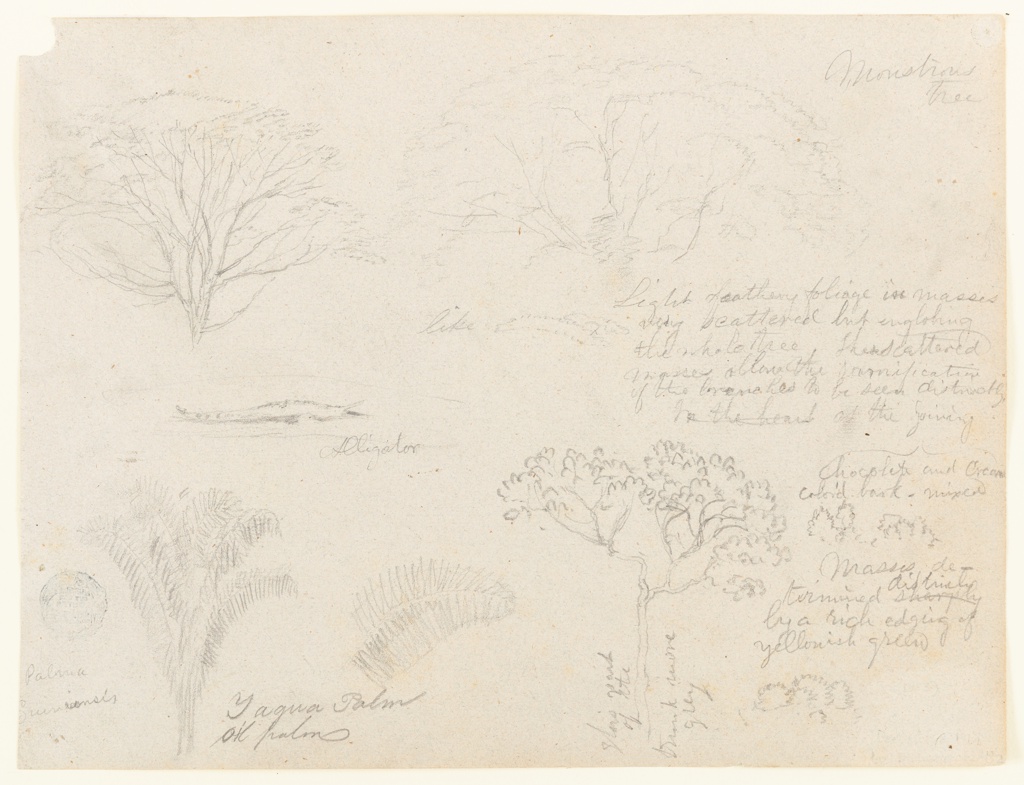 Monstrous
tree
like
Light feathery foliage in masses
very scattered but englobing
the whole tree, the scattered
masses allow the ramification
of the branches to be seen distinctly
to the heart of the
Aligátor
Chocolate and Cream
color'd bark - mixed
Masses de-
distinctly
termined sharply
by a rich edging of
yellowish green
this part
of the
trunk more
grey
Palma
Yagua Palm
oil palm